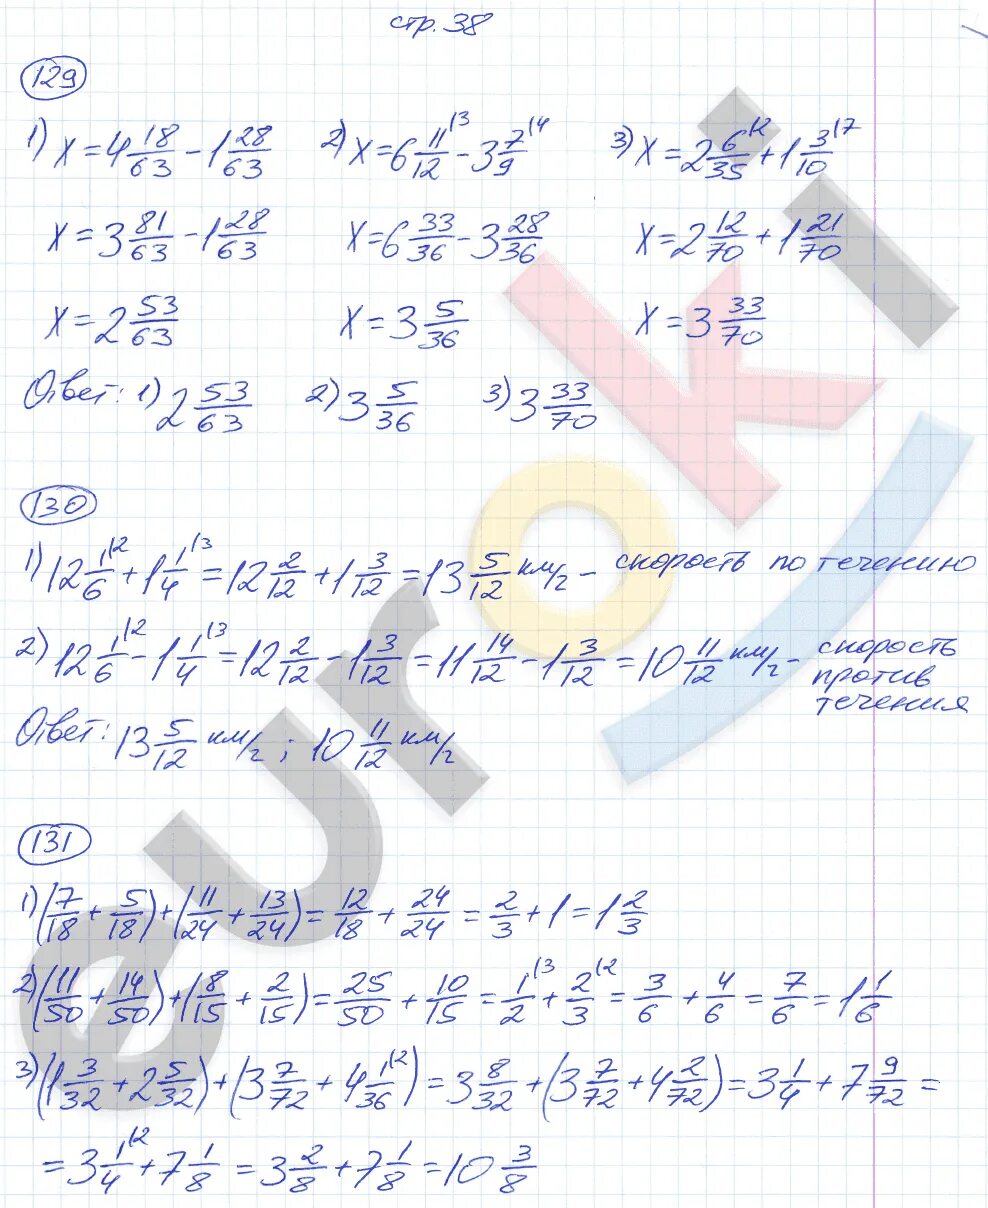 стр. 38
129
1) x = 4 18/63 - 1 28/63   2) x = 6 11/12 \3 - 3 7/9 \4   3) x = 2 6/35 \2 + 1 3/10 \7
x = 3 81/63 - 1 28/63   x = 6 33/36 - 3 28/36   x = 2 12/70 + 1 21/70
x = 2 53/63   x = 3 5/36   x = 3 33/70
Ответ: 1) 2 53/63   2) 3 5/36   3) 3 33/70
130
1) 12 1/6 \2 + 1 1/4 \3 = 12 2/12 + 1 3/12 = 13 5/12 км/г - скорость по течению
2) 12 1/6 \2 - 1 1/4 \3 = 12 2/12 - 1 3/12 = 11 14/12 - 1 3/12 = 10 11/12 км/г - скорость
против
течения
Ответ: 13 5/12 км/г ; 10 11/12 км/г
131
1) (7/18 + 5/18) + (11/24 + 13/24) = 12/18 + 24/24 = 2/3 + 1 = 1 2/3
2) (11/50 + 14/50) + (8/15 + 2/15) = 25/50 + 10/15 = 1/2 \3 + 2/3 \2 = 3/6 + 4/6 = 7/6 = 1 1/6
3) (1 3/32 + 2 5/32) + (3 7/72 + 4 1/36 \2) = 3 8/32 + (3 7/72 + 4 2/72) = 3 1/4 + 7 9/72 =
= 3 1/4 \2 + 7 1/8 = 3 2/8 + 7 1/8 = 10 3/8
euroki